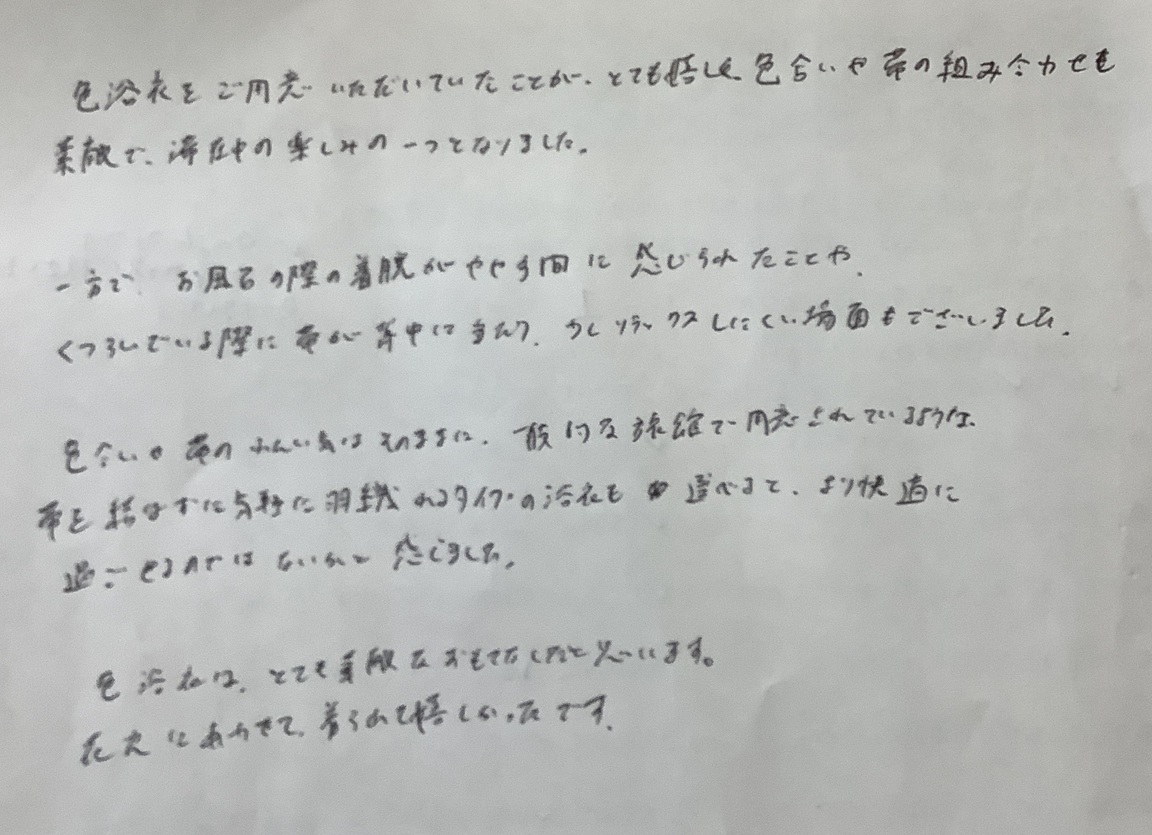 色浴衣をご用意いただいていたことが、とても嬉しく、色合いや帯の組み合わせも
素敵で、滞在中の楽しみの一つとなりました。
一方で、お風呂の際の着脱がやや手間に感じられたことや、
くつろいでいる際に帯が背中に当たり、少しリラックスしにくい場面もございました。
色合いや帯のふんい気はそのままに、一般的な旅館で用意されているような、
帯を結ばずに気軽に羽織れるタイプの浴衣も選べると、より快適に
過ごせるのではないかと感じました。
色浴衣は、とても素敵なおもてなしだと思います。
花火にあわせて、着られて嬉しかったです。